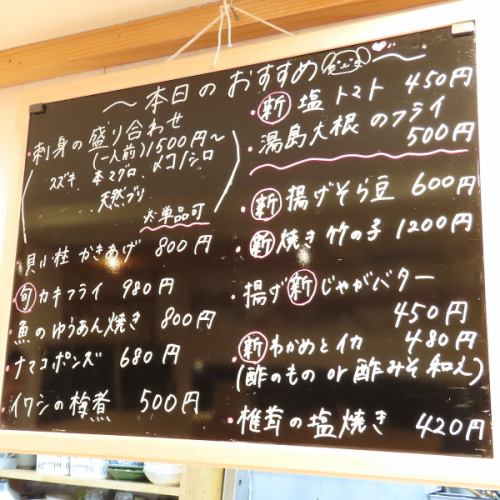 〜本日のおすすめ〜
・刺身の盛り合わせ
(一人前)1500円〜
スズキ、本マグロ、メコノシロ
、天然ブリ
☆単品可
・貝柱かきあげ 800円
・旬カキフライ 980円
・魚のゆうあん焼き 800円
・ナマコポンズ 680円
・イワシの梅煮 500円
・新塩トマト 450円
・湯島大根のフライ
500円
・新揚げそら豆 600円
・新焼き竹の子 1200円
・揚げ新じゃがバター
450円
・新わかめとイカ 480円
(酢のもの or 酢みそ和え)
・椎茸の塩焼き 420円